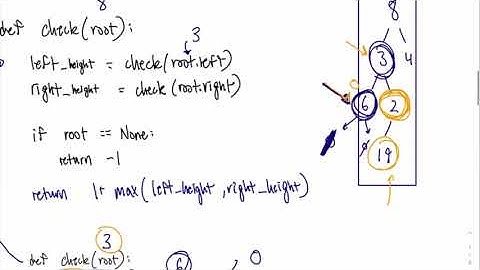 8
def check(root):
3
left_height = check(root.left)
right_height = check(root.right)
if root == None:
return -1
return 1+ max(left_height, right_height)
8
3
4
6
2
19
3
def check(root):
6
0